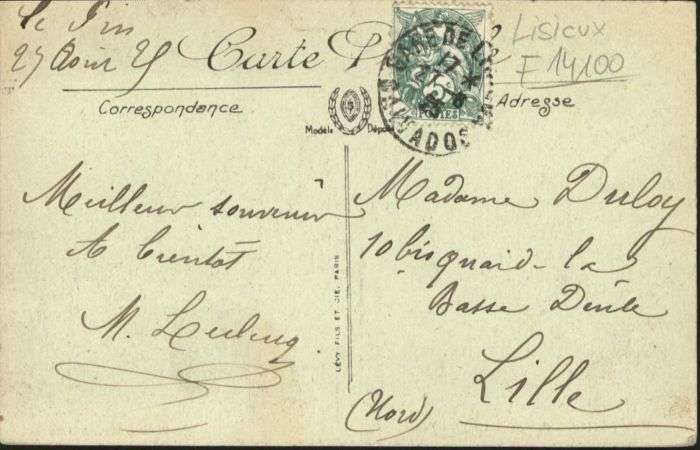 Le Pin
27 Août 25
Carte P
Lisieux
F 14100
Correspondance
Adresse
Modèle Déposé
GARE DE L
17
27 - 8
25
CALVADOS
POSTES
Meilleur souvenir
A bientôt
M. Leclercq
LÉVY FILS ET CIE, PARIS
Madame Duloy
10 bis quai de la
Basse Deûle
Lille
(Nord)